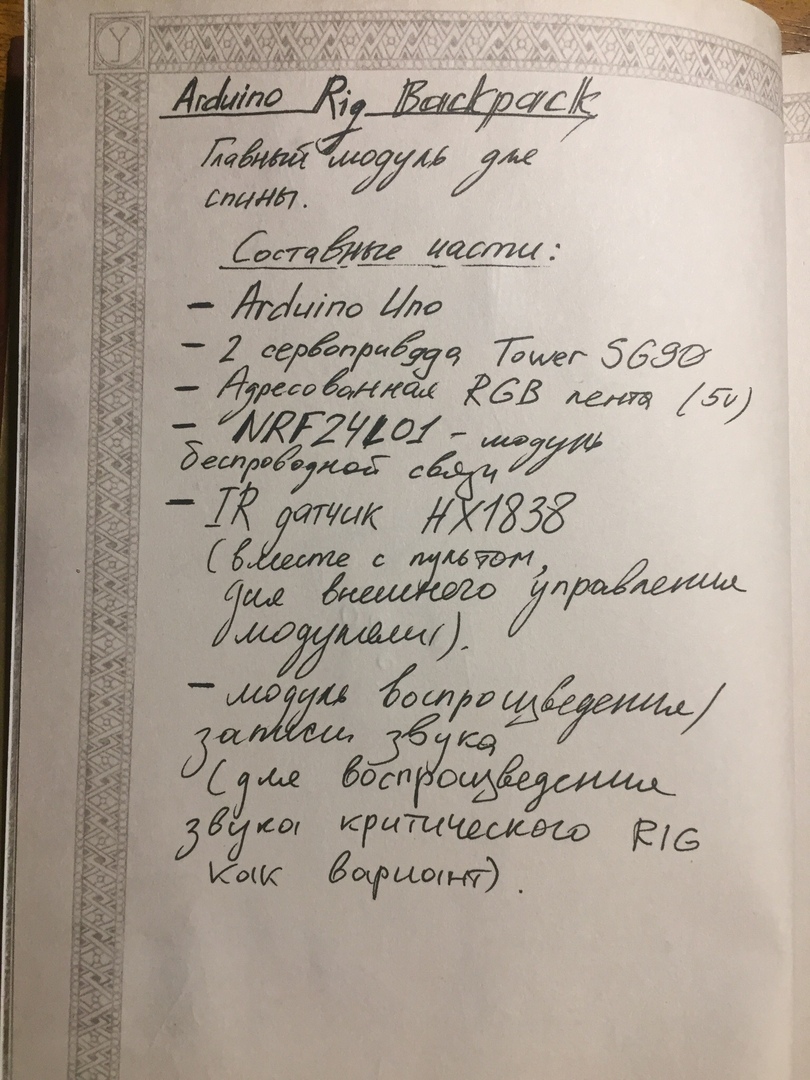 Y
Arduino Rig Backpack
Главный модуль для
спины.
Составные части:
- Arduino Uno
- 2 сервопривода Tower SG90
- Адресованная RGB лента (5v)
- NRF24L01 - модуль
беспроводной связи
- IR датчик HX1838
(вместе с пультом,
для внешнего управления
модулем).
- модуль воспроизведения/
записи звука
(для воспроизведения
звука критического RIG
как вариант).